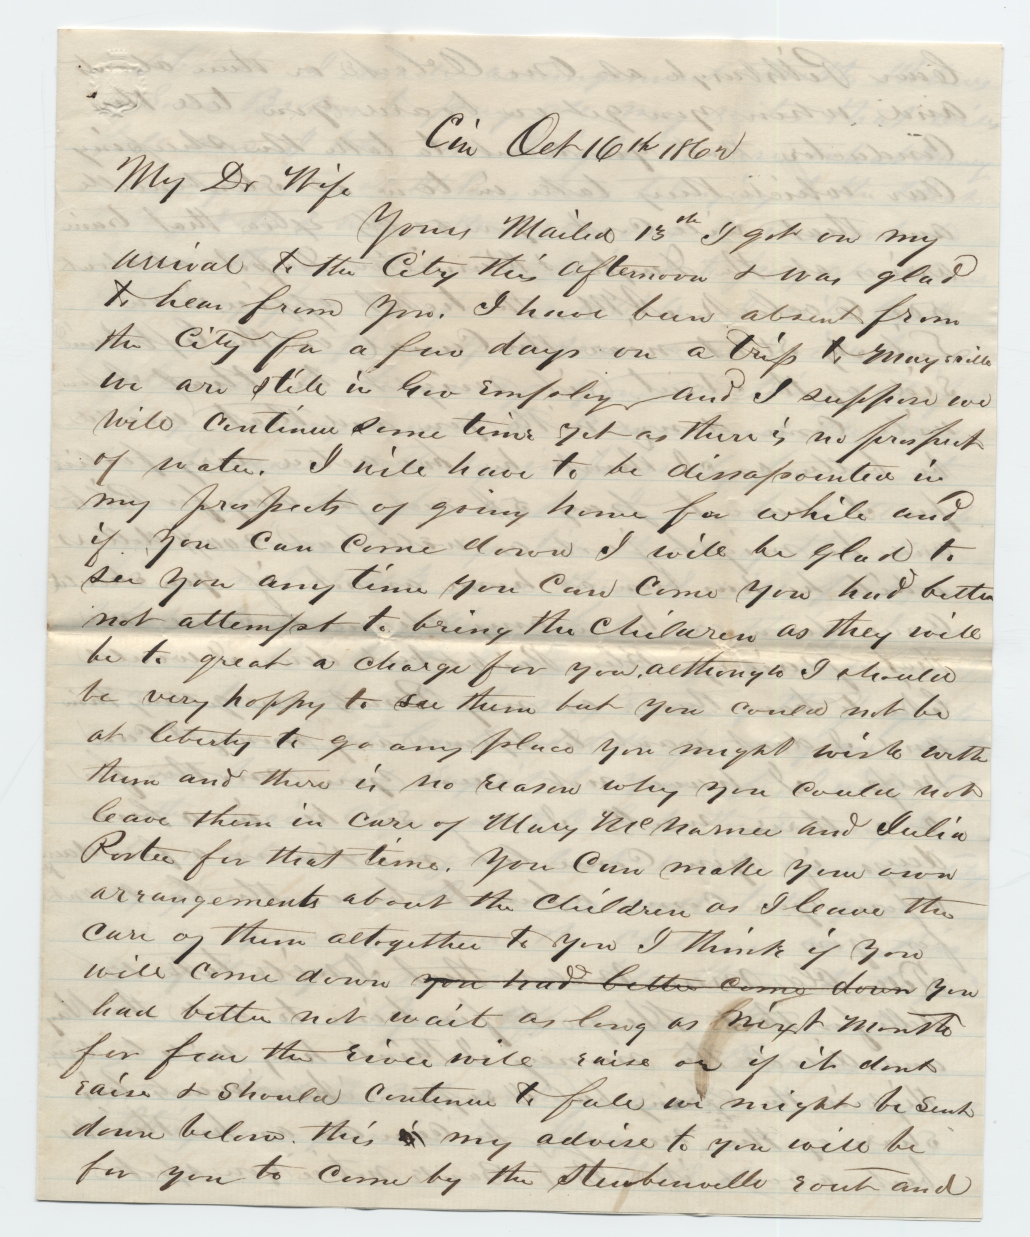 Cin Oct 16th 1862
My Dr Wife
Yours Mailed 13th I got on my
arrival to the City this afternoon & was glad
to hear from you. I have been absent from
the City for a few days on a trip to Maysville
we are still in Gov Employ and I suppose we
will continue some time yet as there is no prospect
of water. I will have to be dissapointed in
my prospects of going home for while and
if you can come down I will be glad to
see you any time you can come you had better
not attempt to bring the Children as they will
be to great a charge for you. although I should
be very happy to see them but you could not be
at liberty to go any place you might wish with
them and there is no reason why you could not
leave them in care of Mary McNamee and Julia
Porter for that time. You can make your own
arrangements about the Children as I leave the
care of them altogether to you I think if you
will come down you had better come down you
had better not wait as long as next Month
for fear the river will raise or if it dont
raise & should continue to fall we might be sent
down below. this is my advise to you will be
for you to come by the Steubenville rout and